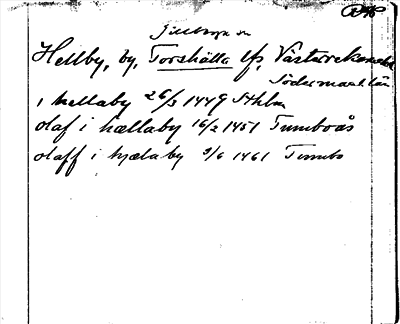 Hellby, by, Torshälla lfs, Västerrekarne
Södermanl. län
i hellaby 26/3 1449 Sthlm
olaf i hællaby 16/2 1451 Tumboås
olaff i hjælaby 3/6 1461 Tumbo